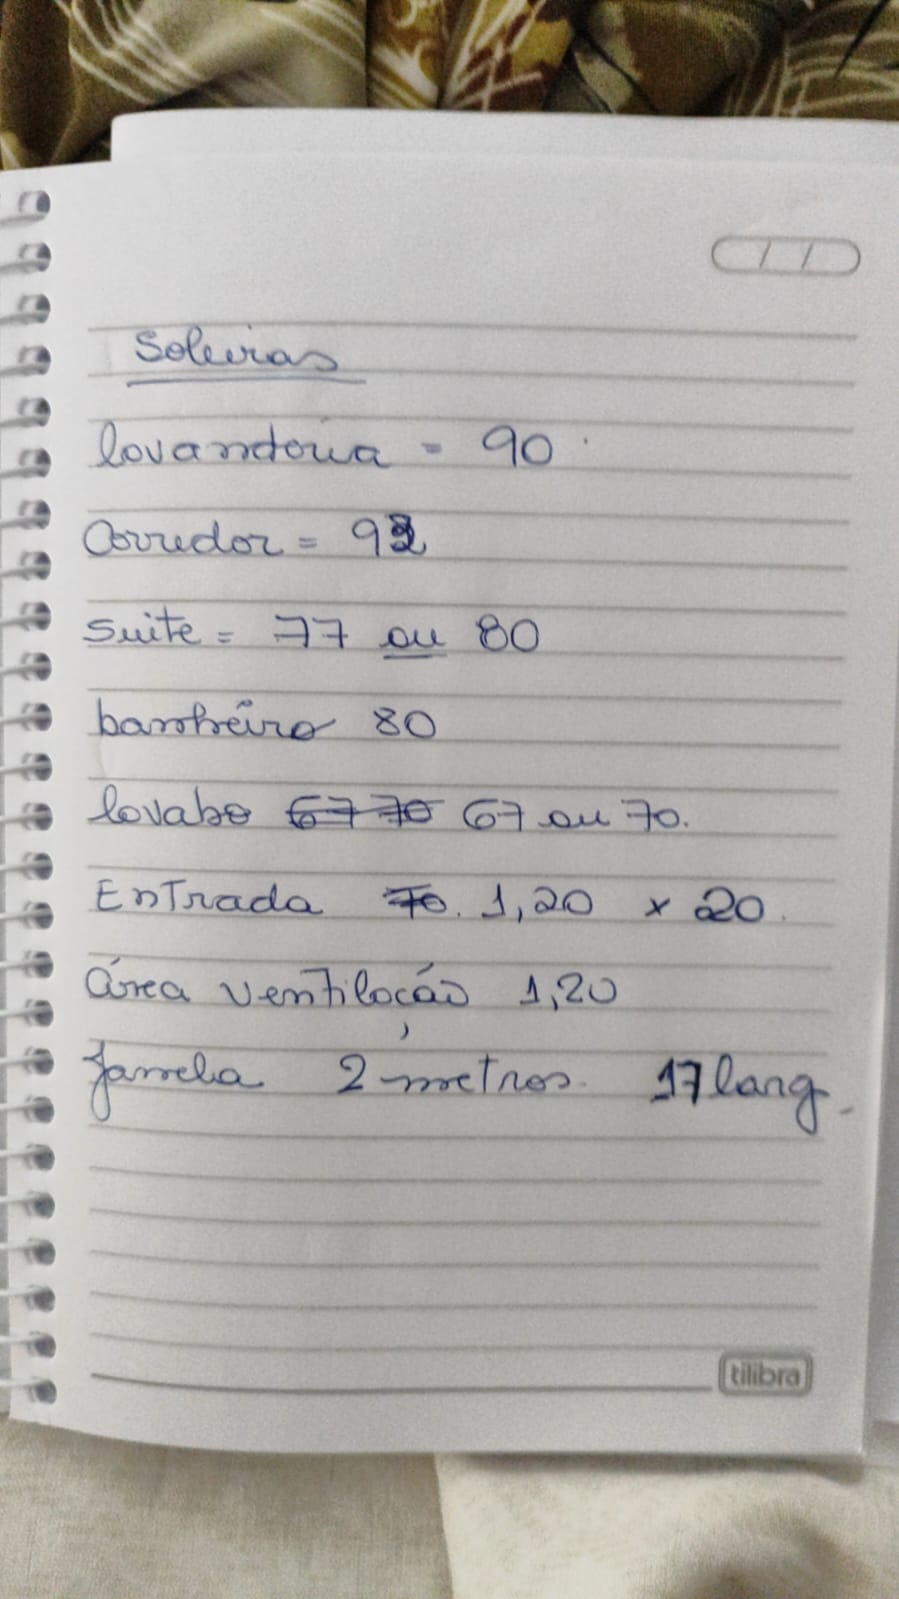 Soleiras
lavanderia = 90
Corredor = 92
Suite = 77 ou 80
banheiro 80
lavabo 67 70 67 ou 70.
Entrada 70. 1,20 x 20.
área ventilação 1,20
janela 2 metros. 17 larg.
tilibra